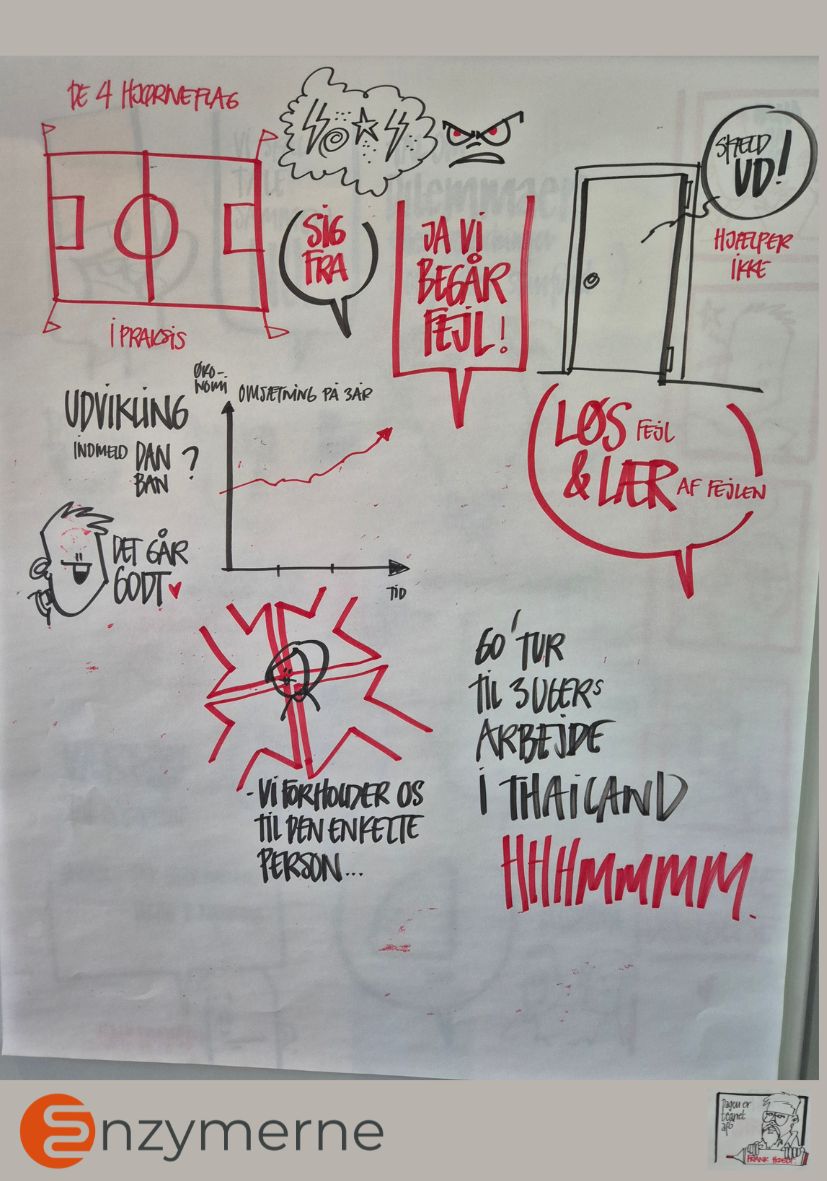 DE 4 HJØRNEFLAG
I PRAKSIS
SIG
FRA
JA VI
BEGÅR
FEJL!
SKÆLD
UD!
HJÆLPER
IKKE
UDVIKLING
INDMELD DAN
BAN ?
ØKO-
NOMI
OMSÆTNING PÅ 3 ÅR
TID
DET GÅR
GODT
LØS FEJL
& LÆR AF FEJLEN
- VI FORHOLDER OS
TIL DEN ENKELTE
PERSON...
GO' TUR
TIL 3 UGERS
ARBEJDE
I THAILAND
HHHMMMMM.
enzymerne
Dagen er
tegnet
af:
FRANK